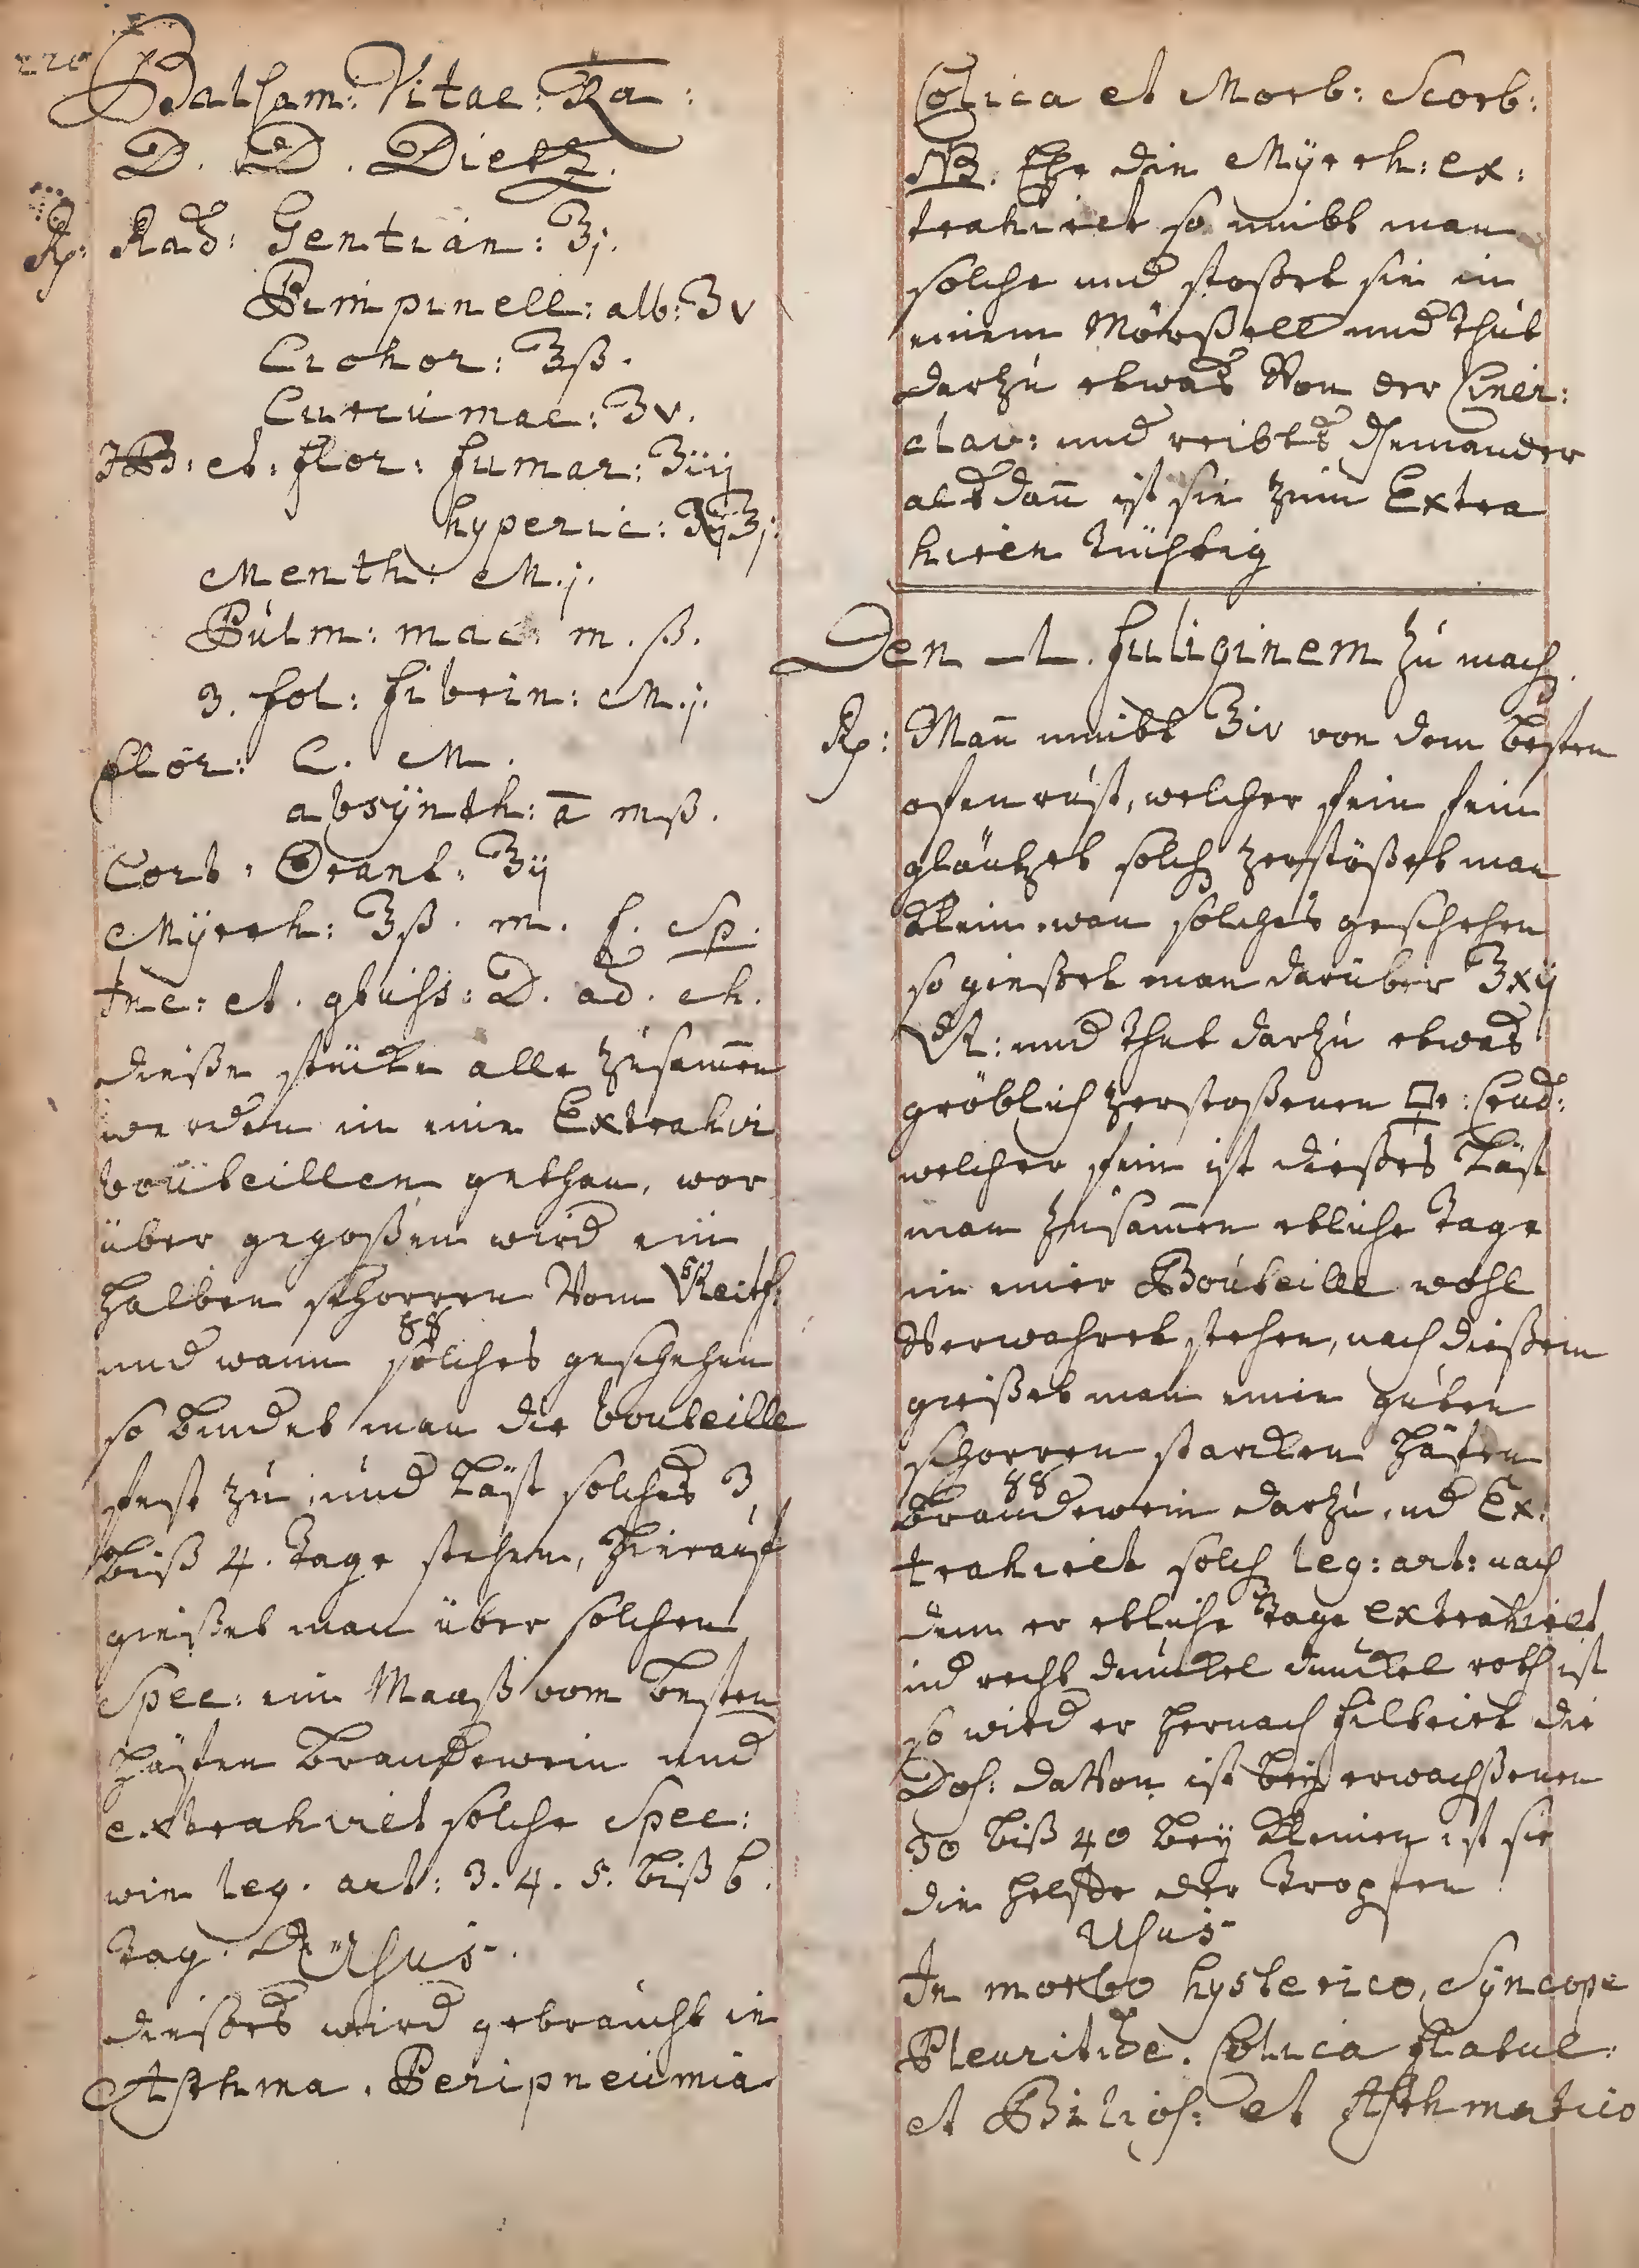 220
Balsam: Vitae: Ra:
D. D. Dietz.
Rp: Rad: Gentian: ʒj.
Pimpinell: alb: ʒv
Crokor: ʒß.
Curcumae: ʒv.
HB: et: flor: fumar: ʒiij
hyperic:
Menth: M.j.
Pulm: mac: m. ß.
3. fol: fibrin: M.j.
flor: C. M.
absÿnth: a mß.
Cort: Orant: ʒij
Mÿrrh: ʒß. m. f. Sp.
Inc: et. D. ad. ch.
dießen stücke alle zusam̄en
werden in eine Extrahir
bouteillen gethan, wor
über gegoßen wird ein
halben schorren Vom
und wann solches geschehen
so bindet man die bouteille
fest zu, und läst solches 3,
biß 4. tage stehen, hierauf
gießet man über solchen
Spec: ein Maaß vom besten
häfen brandewein und
extrahiret solche Spec:
wie leg. art: 3. 4. 5. biß 6.
tag. Usus.
dießes wird gebraucht in
Asthma. Peripneumia
Colica et Morb: Scorb:
NB. Ehe die Mÿrrh: ex:
trahiret so nimbt man
solche und stoßet sie in
einem Mörßell und thut
darzu etwas Von der Ciner:
clav: und reibts
alsdan̄ ist sie zum Extra
hiren tüchtig
Den L. fuliginem zu mach
Rp: Man̄ nimbt ʒiv von dem besten
ofen rust, welcher fein fein
gläntzet solch zerstößet man
klein, wan solches geschehen
so gießet man darüber ʒxij
und thut darzu etwas
gröblich zerstoßenen crud:
welcher fein ist dießes läst
man zusam̄en etliche tage
in einer Bouteille wohl
Verwahret stehen, nach dießem
gießet man einen guten
schorren starcken häfen
brandewein darzu, ud Ex:
trahiret solch leg: art: nach
dem er etliche tage extrahirt
ud recht dunckel dunckel roth ist
so wird er hernach filtrirt die
Dos: datvon ist beÿ erwachßenen
30 biß 40 beÿ kleinen ist sie
die helfte der tropfen
Usus
In morbo hysterico, Sÿncope
Pleuritide. Colica flatul:
et Bilios: et Asthmatico